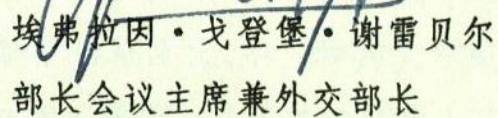 埃弗拉因·戈登堡·谢雷贝尔
部长会议主席兼外交部长